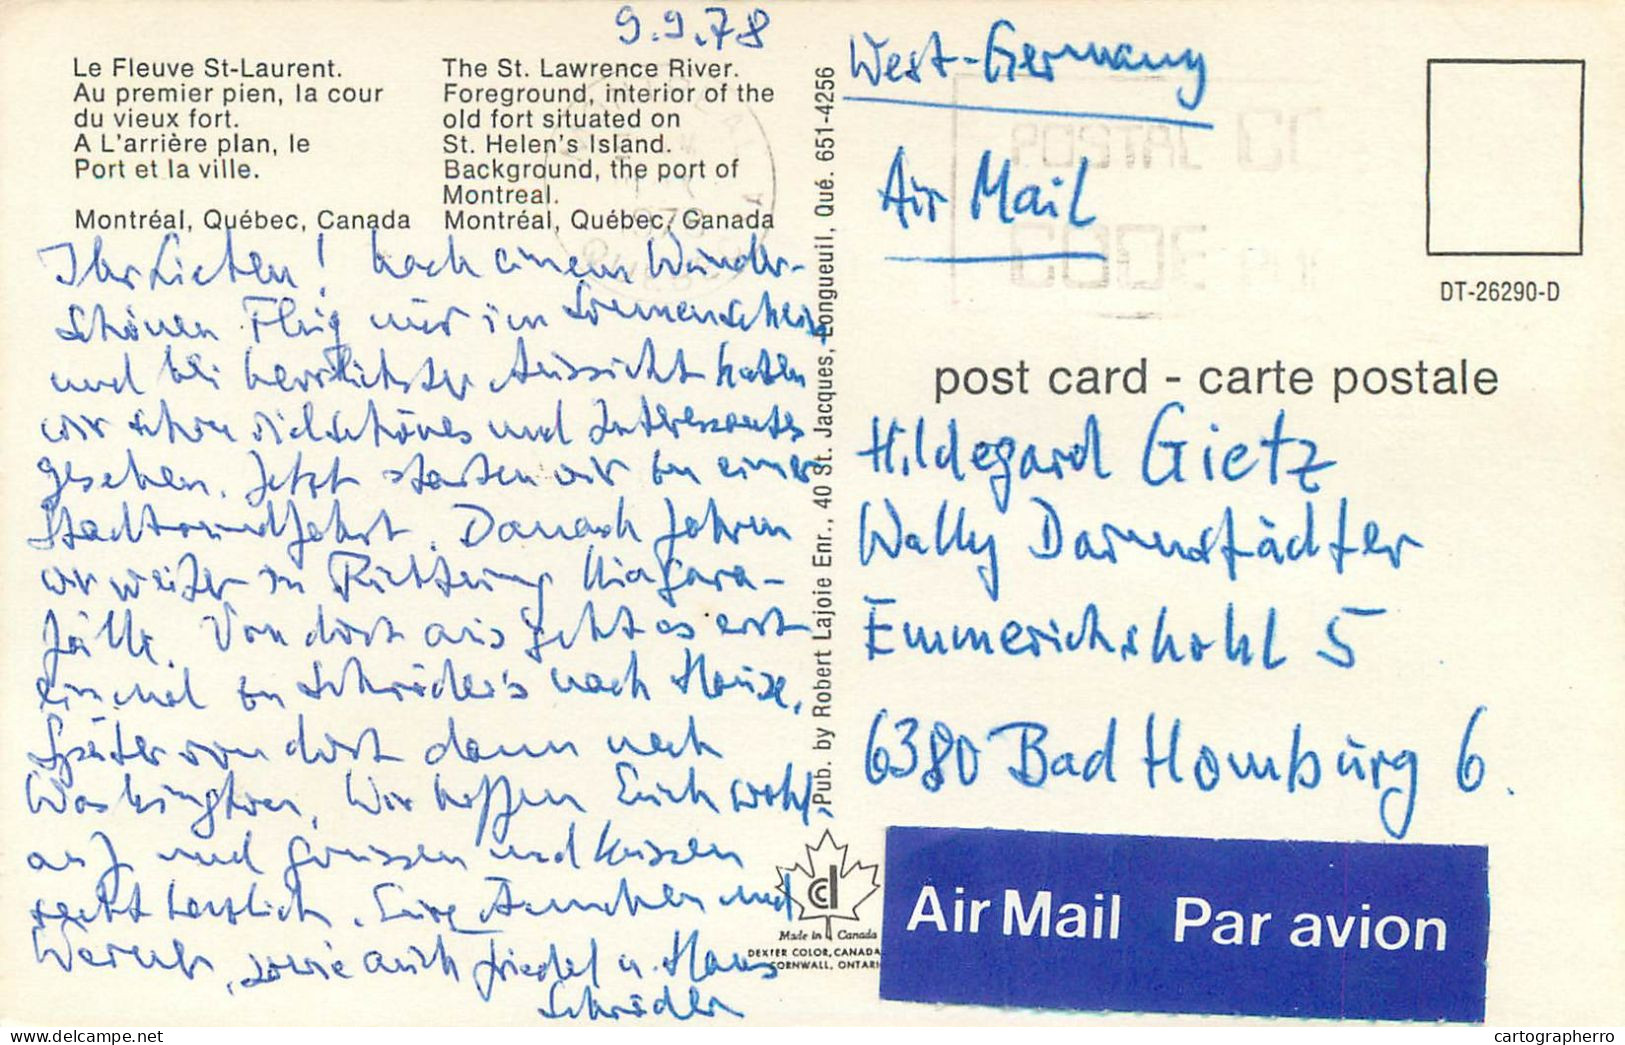 9.9.78
Le Fleuve St-Laurent.
Au premier pien, la cour
du vieux fort.
A L'arrière plan, le
Port et la ville.
Montréal, Québec, Canada
The St. Lawrence River.
Foreground, interior of the
old fort situated on
St. Helen's Island.
Background, the port of
Montreal.
Montréal, Québec, Canada
Ihr Lieben! Nach einem wunder-
schönen Flug nur im Sonnenschein
und bei herrlichster Aussicht haben
wir schon viel schönes und Interessantes
gesehen. Jetzt starten wir zu einer
Stadtrundfahrt. Danach fahren
wir weiter in Richtung Niagara-
fälle. Von dort aus geht es erst
einmal zu Schröder's nach Hause,
später von dort dann nach
Washington. Wir hoffen Euch wohl-
auf und grüssen und küssen
recht herzlich. Eure Ännchen und
Werner, sowie auch Friedel u. Hans
Schröder
Pub. by Robert Lajoie Enr., 40 St. Jacques, Longueuil, Qué. 651-4256
West-Germany
Air Mail
POSTAL
CODE
DT-26290-D
post card - carte postale
Hildegard Gietz
Wally Darmstädter
Emmerichshohl 5
6380 Bad Homburg 6.
Made in Canada
DEXTER COLOR, CANADA
CORNWALL, ONTARI
Air Mail Par avion
delcampe.net
cartographerro